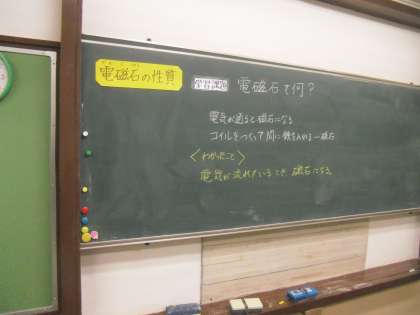 電磁石の性質
学習課題 電磁石って何？
電気が通ると磁石になる
コイルをつくって間に鉄を入れる→磁石
＜わかったこと＞
電気が流れているとき、磁石になる。